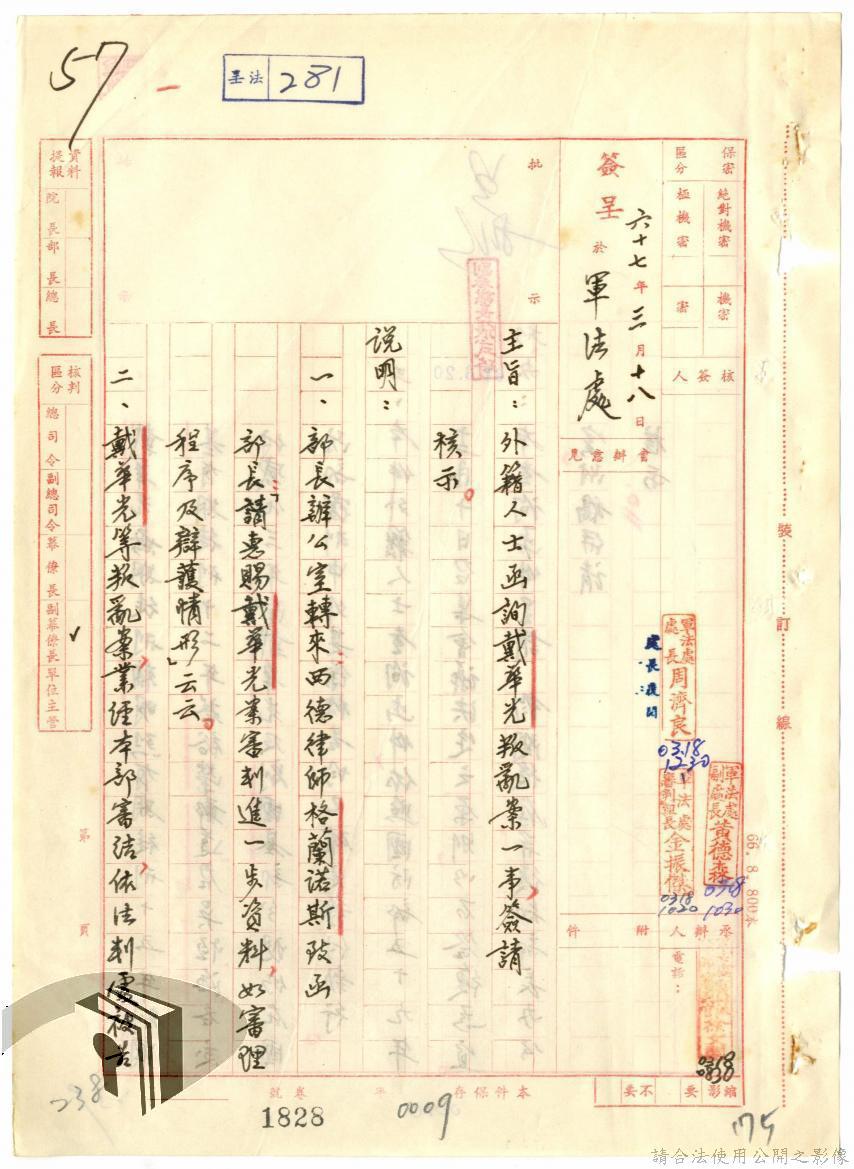 57
呈法 281
保密區分
絕對機密
極機密
機密
密
核簽人
會辦意見
承辦人
附件
電話：
縮影
要
不要
簽呈 於 軍法處
六十七年三月十八日
軍法處處長周濟良
0318
1230
軍法處副處長黃德森
0318
1030
軍法處審判組長金振傑
0318
1020
批示
主旨：外籍人士函詢戴華光叛亂案一事，簽請
核示。
說明：
一、部長辦公室轉來西德律師格蘭諾斯致函
部長「請惠賜戴華光案審判進一步資料，如審理
程序及辯護情形」云云。
二、戴華光等叛亂案業經本部審結，依法判處被告
資料提報
院長
部長
總長
核判區分
總司令
副總司令
幕僚長
副幕僚長
單位主管
第
頁
本件保存
年
卷號
1828
0009
238
175
裝訂線
66.8.800本
請合法使用公開之影像